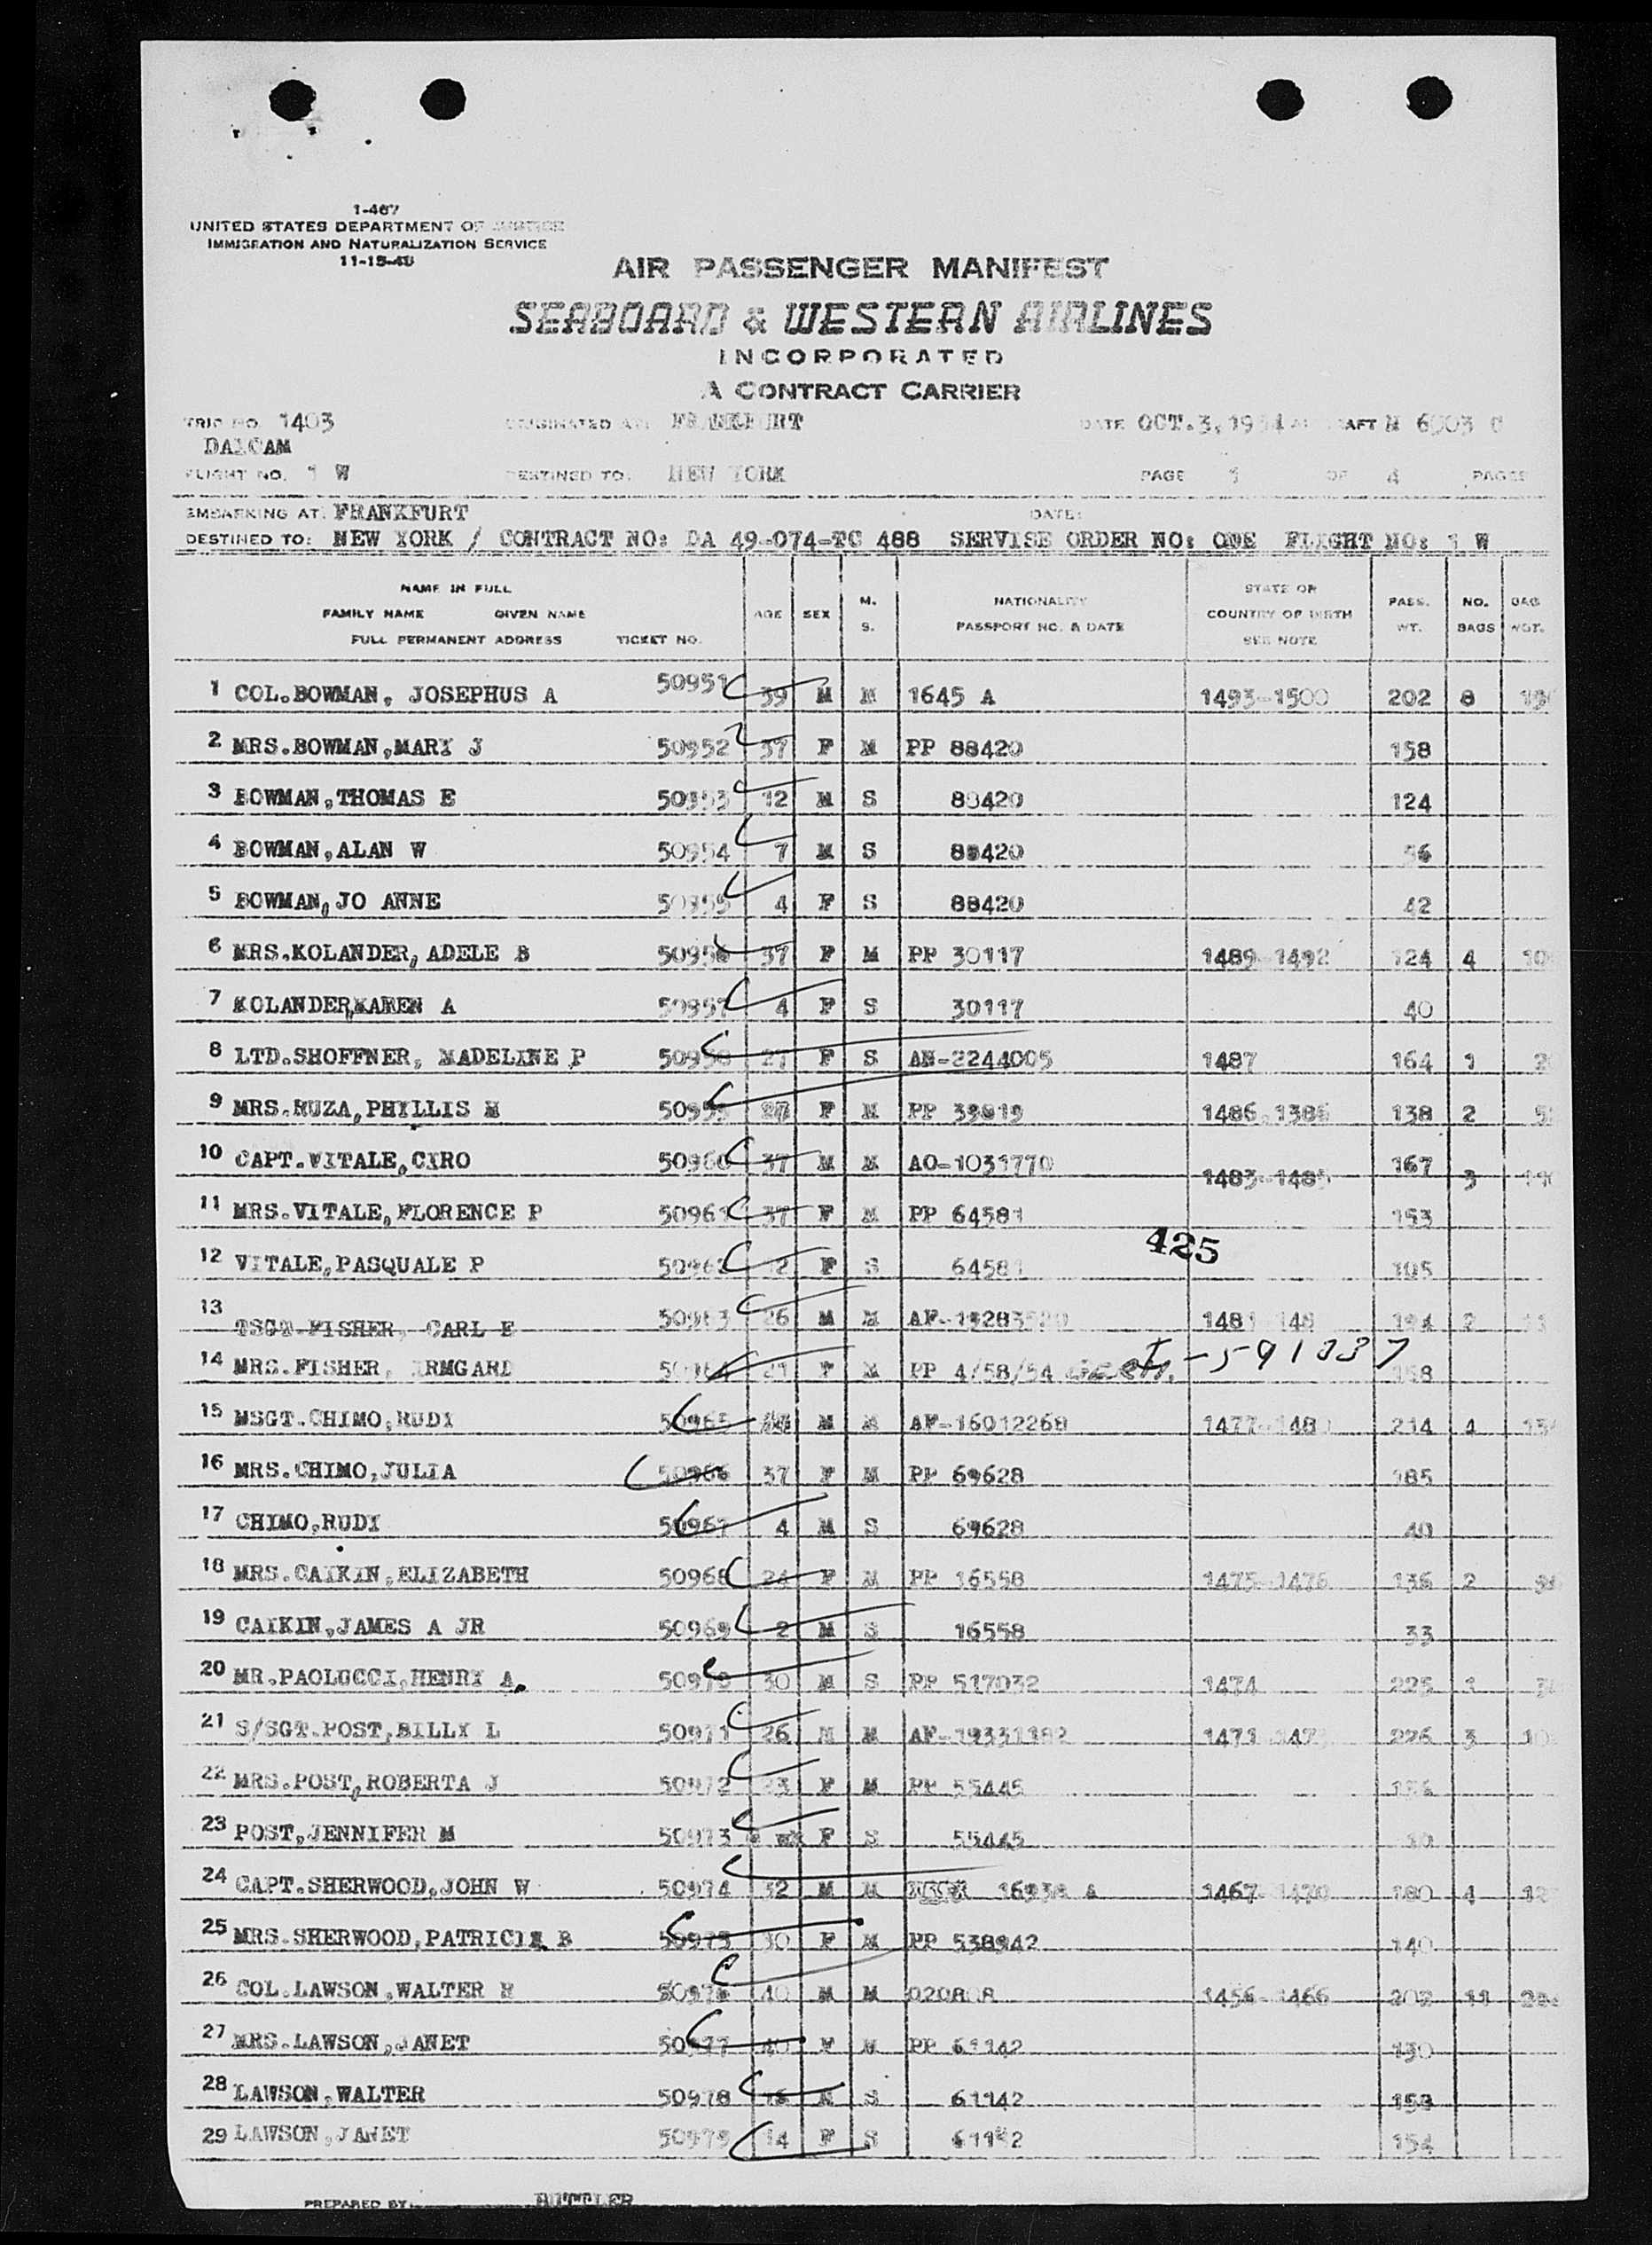 1-467
UNITED STATES DEPARTMENT OF JUSTICE
IMMIGRATION AND NATURALIZATION SERVICE
11-15-48
AIR PASSENGER MANIFEST
SEABOARD & WESTERN AIRLINES
INCORPORATED
A CONTRACT CARRIER
TRIP NO. 1403 ORIGINATED AT: FRANKFURT DATE OCT.3,1954 AIRCRAFT N 6903 C
DALCAM
FLIGHT NO. 1 W DESTINED TO: NEW YORK PAGE 1 OF 4 PAGES
EMBARKING AT: FRANKFURT DATE:
DESTINED TO: NEW YORK / CONTRACT NO: DA 49-074-TC 488 SERVISE ORDER NO: ONE FLIGHT NO: 1 W
NAME IN FULL
FAMILY NAME GIVEN NAME
FULL PERMANENT ADDRESS TICKET NO. AGE SEX M. S. NATIONALITY PASSPORT NO. & DATE STATE OR COUNTRY OF BIRTH SEE NOTE PASS. WT. NO. BAGS BAG WGT.
1 COL.BOWMAN, JOSEPHUS A 50951 39 M M 1645 A 1493-1500 202 8
2 MRS.BOWMAN,MARY J 50952 37 F M PP 88420 158
3 BOWMAN,THOMAS E 50953 12 M S 88420 124
4 BOWMAN,ALAN W 50954 7 M S 88420 56
5 BOWMAN,JO ANNE 50955 4 F S 88420 42
6 MRS.KOLANDER,ADELE B 50956 37 F M PP 30117 1489-1492 124 4
7 KOLANDER,KAREN A 50957 4 F S 30117 40
8 LTD.SHOFFNER, MADELINE P 50958 27 F S AN-2244005 1487 164 1
9 MRS.RUZA,PHYLLIS M 50959 F M PP 39819 1486,1386 138 2
10 CAPT.VITALE,CIRO 50960 37 M M AO-1031770 1483-1485 167 3
11 MRS.VITALE,FLORENCE P 50961 37 F M PP 64581 153
12 VITALE,PASQUALE P 50962 2 F S 64581 105
425
13 TSGT.FISHER, CARL E 50963 26 M M 194 2
14 MRS.FISHER, IRMGARD 50964 21 F M PP 4/58/54 Germ. I-591337
15 MSGT.CHIMO,RUDY 50965 M M AF-16012268 1477-1480 214 4
16 MRS.CHIMO,JULIA 50966 37 F M PP 69628 185
17 CHIMO,RUDY 50967 4 M S 69628 40
18 MRS.CAIKIN,ELIZABETH 50968 24 F M PP 16558 1475-1476 136 2
19 CAIKIN,JAMES A JR 50969 2 M S 16558 33
20 MR.PAOLUCCI,HENRY A. 50970 30 M S PP 517032 1474 225 1
21 S/SGT.POST,BILLY L 50971 26 M M AF-19331182 1471-1473 226 3
22 MRS.POST,ROBERTA J 50972 23 F M PP 55445
23 POST,JENNIFER M 50973 F S 55445
24 CAPT.SHERWOOD,JOHN W 50974 32 M M 16938 A 1467-1470 180 4
25 MRS.SHERWOOD,PATRICIA B 50975 30 F M PP 538942 140
26 COL.LAWSON,WALTER R 50976 40 M M 020808 1456-1466 202 11
27 MRS.LAWSON,JANET 50977 40 F M PP 61142 130
28 LAWSON,WALTER 50978 16 M S 61142 158
29 LAWSON,JANET 50979 14 F S 61142 154
PREPARED BY: BUTTLER